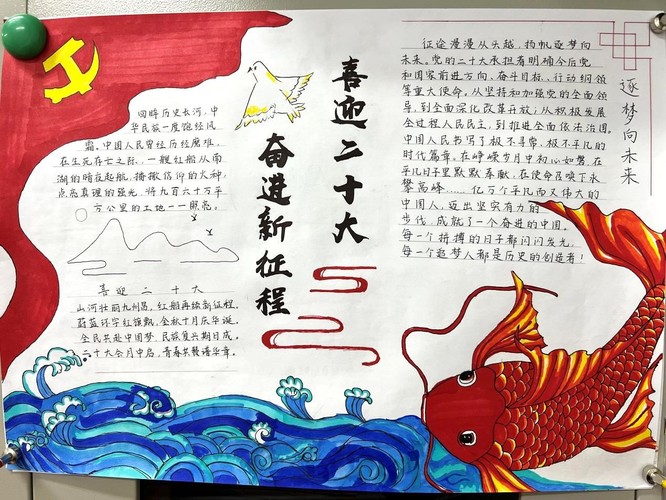 喜迎二十大
奋进新征程
回眸历史长河，中
华民族一度饱经风
霜。中国人民曾经历经磨难，
在生死存亡之际，一艘红船从南
湖的暗夜起航，播撒信仰的火种，
点亮真理的强光，将九百六十万平
方公里的土地一一照亮。
喜迎二十大
山河壮丽九州昌，红船再续新征程，
蔚蓝环宇红旗飘，金秋十月庆华诞。
全民共赴中国梦，民族复兴期日成。
二十大今月中启，青春共赞谱华章。
逐梦向未来
征途漫漫从头越，扬帆逐梦向
未来。党的二十大承担着明确今后党
和国家前进方向、奋斗目标、行动纲领
等重大使命。从坚持和加强党的全面领
导，到全面深化改革开放；从积极发展
全过程人民民主，到推进全面依法治国，
中国人民书写了极不寻常、极不平凡的
时代篇章。在峥嵘岁月中初心如磐，在
平凡日子里默默奉献，在使命召唤下永
攀高峰……亿万个平凡而又伟大的
中国人，迈出坚实有力的
步伐，成就了一个奋进的中国。
每一个拼搏的日子都闪闪发光，
每一个追梦人都是历史的创造者！